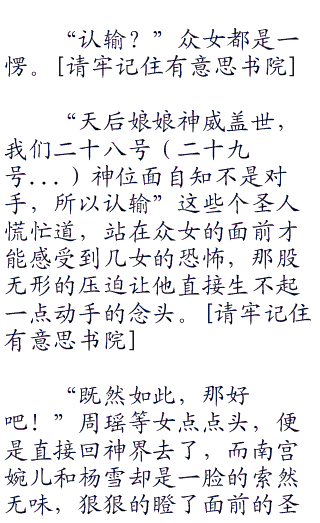 “认输？”众女都是一
愣。[请牢记住有意思书院]
“天后娘娘神威盖世，
我们二十八号（二十九
号...）神位面自知不是对
手，所以认输”这些个圣人
慌忙道，站在众女的面前才
能感受到几女的恐怖，那股
无形的压迫让他直接生不起
一点动手的念头。[请牢记住
有意思书院]
“既然如此，那好
吧！”周瑶等女点点头，便
是直接回神界去了，而南宫
婉儿和杨雪却是一脸的索然
无味，狠狠的瞪了面前的圣